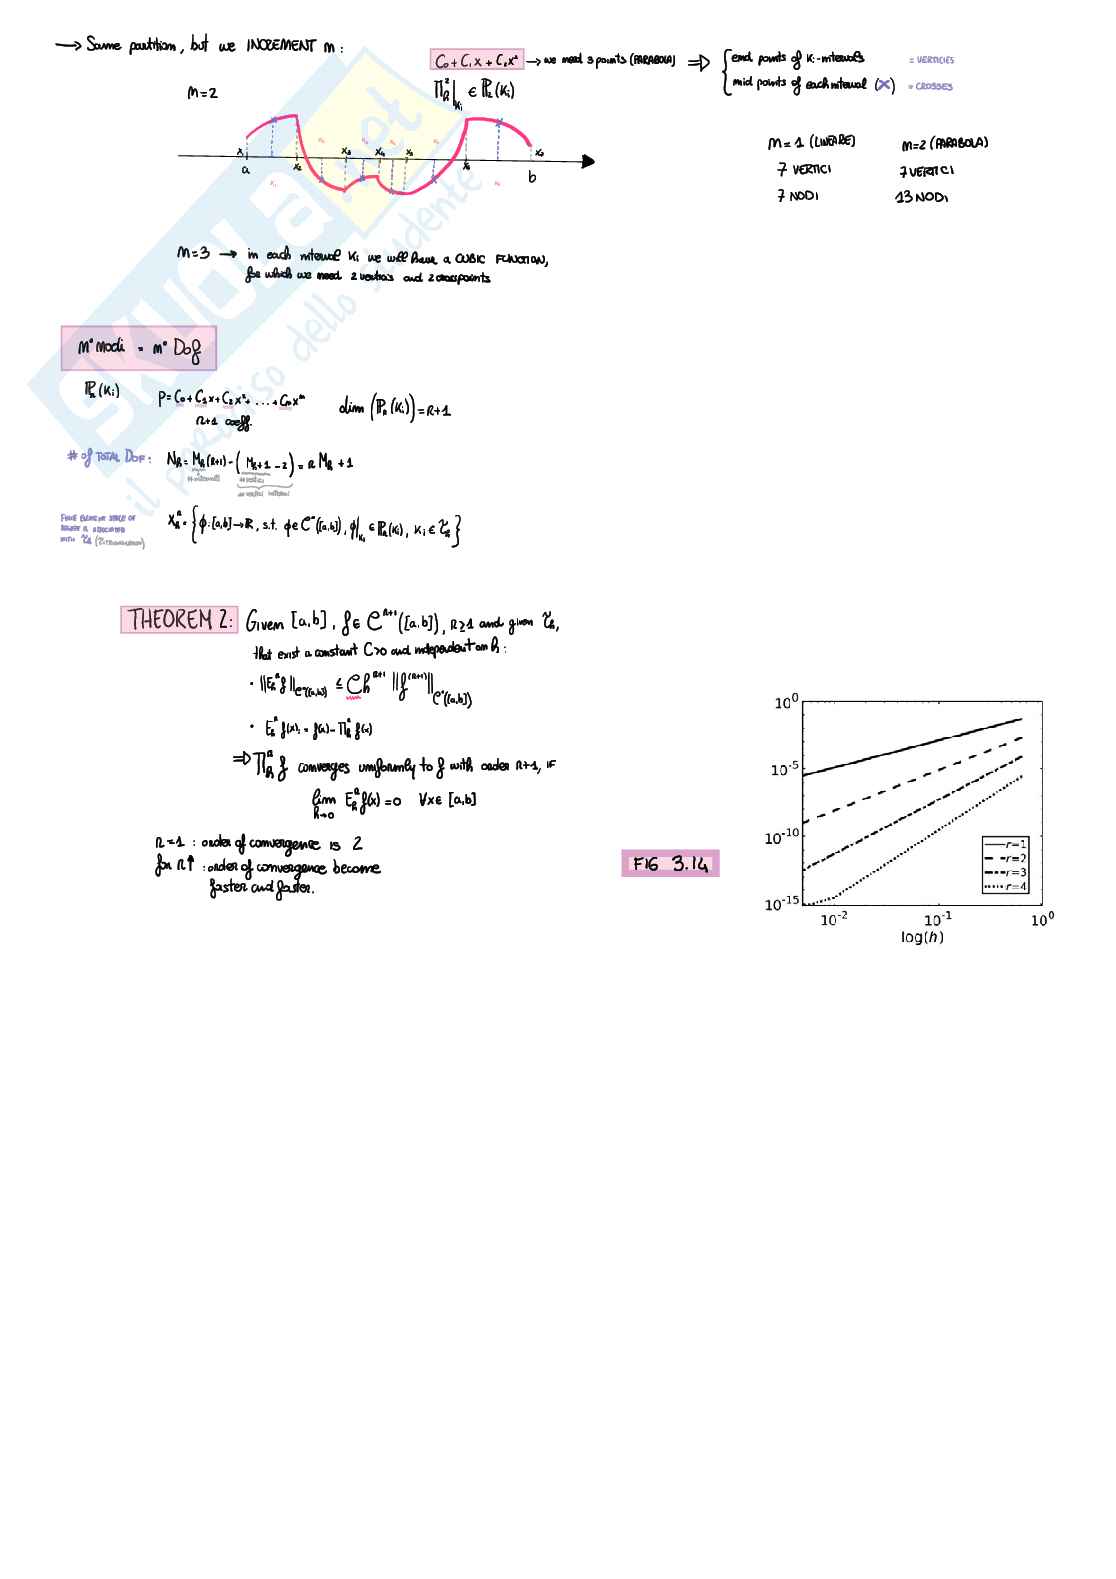 → Same partition, but we INCREMENT m:
C₀ + C₁x + C₂x² → we need 3 points (PARABOLA) ⇒ { end points of Ki-intervals = VERTICIES
mid points of each interval (×) = CROSSES
m=2
Πₕ²|Ki ∈ ℙ₂(Ki)
m=1 (LINEARE) m=2 (PARABOLA)
7 VERTICI 7 VERTICI
7 NODI 13 NODI
x₁ x₂ x₃ x₄ x₅ x₆
a b
m=3 → in each interval Ki we will have a CUBIC FUNCTION,
for which we need 2 vertices and 2 crosspoints
SKUOLA.net
il paradiso dello studente
m° modi = m° Dof
ℙᵣ(Ki) P = C₀ + C₁x + C₂x² + .... + Cᵣxᵐ dim (ℙᵣ(Ki)) = R+1
R+1 coeff.
# of TOTAL DOF: Nₕ = Mₕ(R+1) - (Mₕ+1 - 2) = R Mₕ + 1
# intervalli # vertici
# vertici interni
FINITE ELEMENT SPACE OF
DEGREE R ASSOCIATED
WITH 𝒯ₕ (TRIANGULATION)
Xₕᴿ = { ϕ: [a,b] → ℝ, s.t. ϕ ∈ C°([a,b]), ϕ|Ki ∈ ℙᵣ(Ki), Ki ∈ 𝒯ₕ }
THEOREM 2: Given [a,b], f ∈ Cᴿ⁺¹([a,b]), R≥1 and given 𝒯ₕ,
that exist a constant C>0 and independent on h:
· ||Eₕᴿ f||C°([a,b]) ≤ C hᴿ⁺¹ ||f⁽ᴿ⁺¹⁾||C°([a,b])
· Eₕᴿ f(x) = f(x) - Πₕᴿ f(x)
⇒ Πₕᴿ f converges uniformly to f with order R+1, IF
lim h→0 Eₕᴿ f(x) = 0 ∀x ∈ [a,b]
R=1 : order of convergence is 2
for R↑ : order of convergence become
faster and faster.
FIG 3.14
10⁰
10⁻⁵
10⁻¹⁰
10⁻¹⁵
r=1
r=2
r=3
r=4
10⁻² 10⁻¹ 10⁰
log(h)